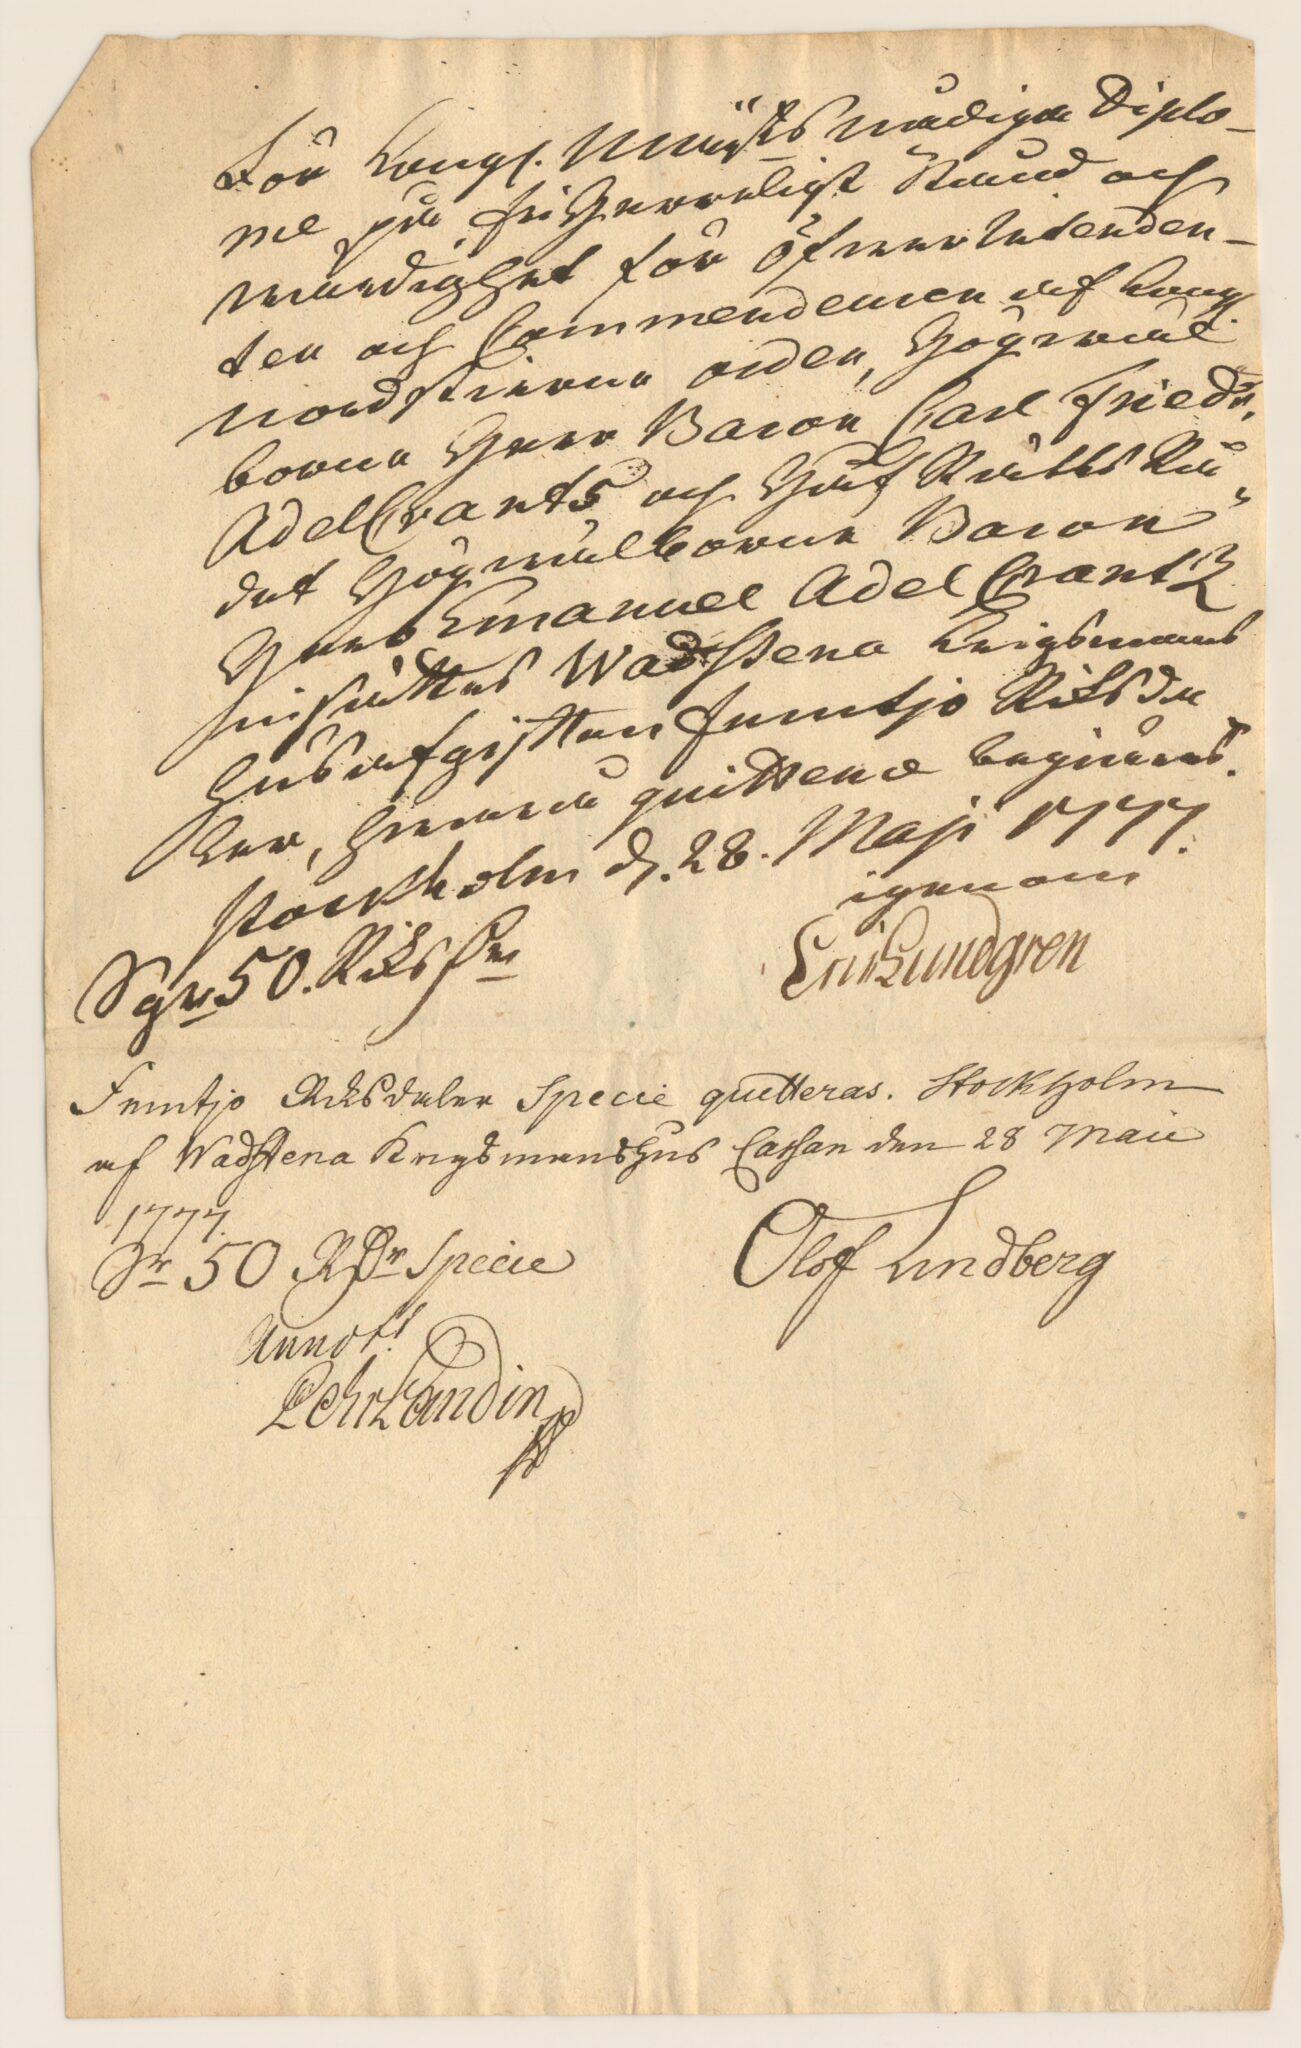 För Kongl. Maij:ts nådiga Diplo-
me på friherreligt Stånd och
wärdighet för Öfwer Intenden-
ten och Commendeuren af Kongl.
nordstierne orden, Högwäl
borne Herr Baron Carl Friedr.
AdelCrants och Hof Rätts Rå-
det Högwälborne Baron
Herr Emanuel AdelCrantz
insättes Wadstena Krigsmans
hus afgiften femtjo Riksda
ler, hwarå quittence begiäres.
Stockholm d. 28. Maji 1777.
igenom
Eric Lundgren
Sgr 50. Riks Dr
Femtjo Riksdaler Specie quitteras. Stockholm
af Wadstena Krigsmanshus Cassan den 28 Maii
1777.
Sr 50 RDr Specie
Olof Lindberg
Annot:
Pehr Landin